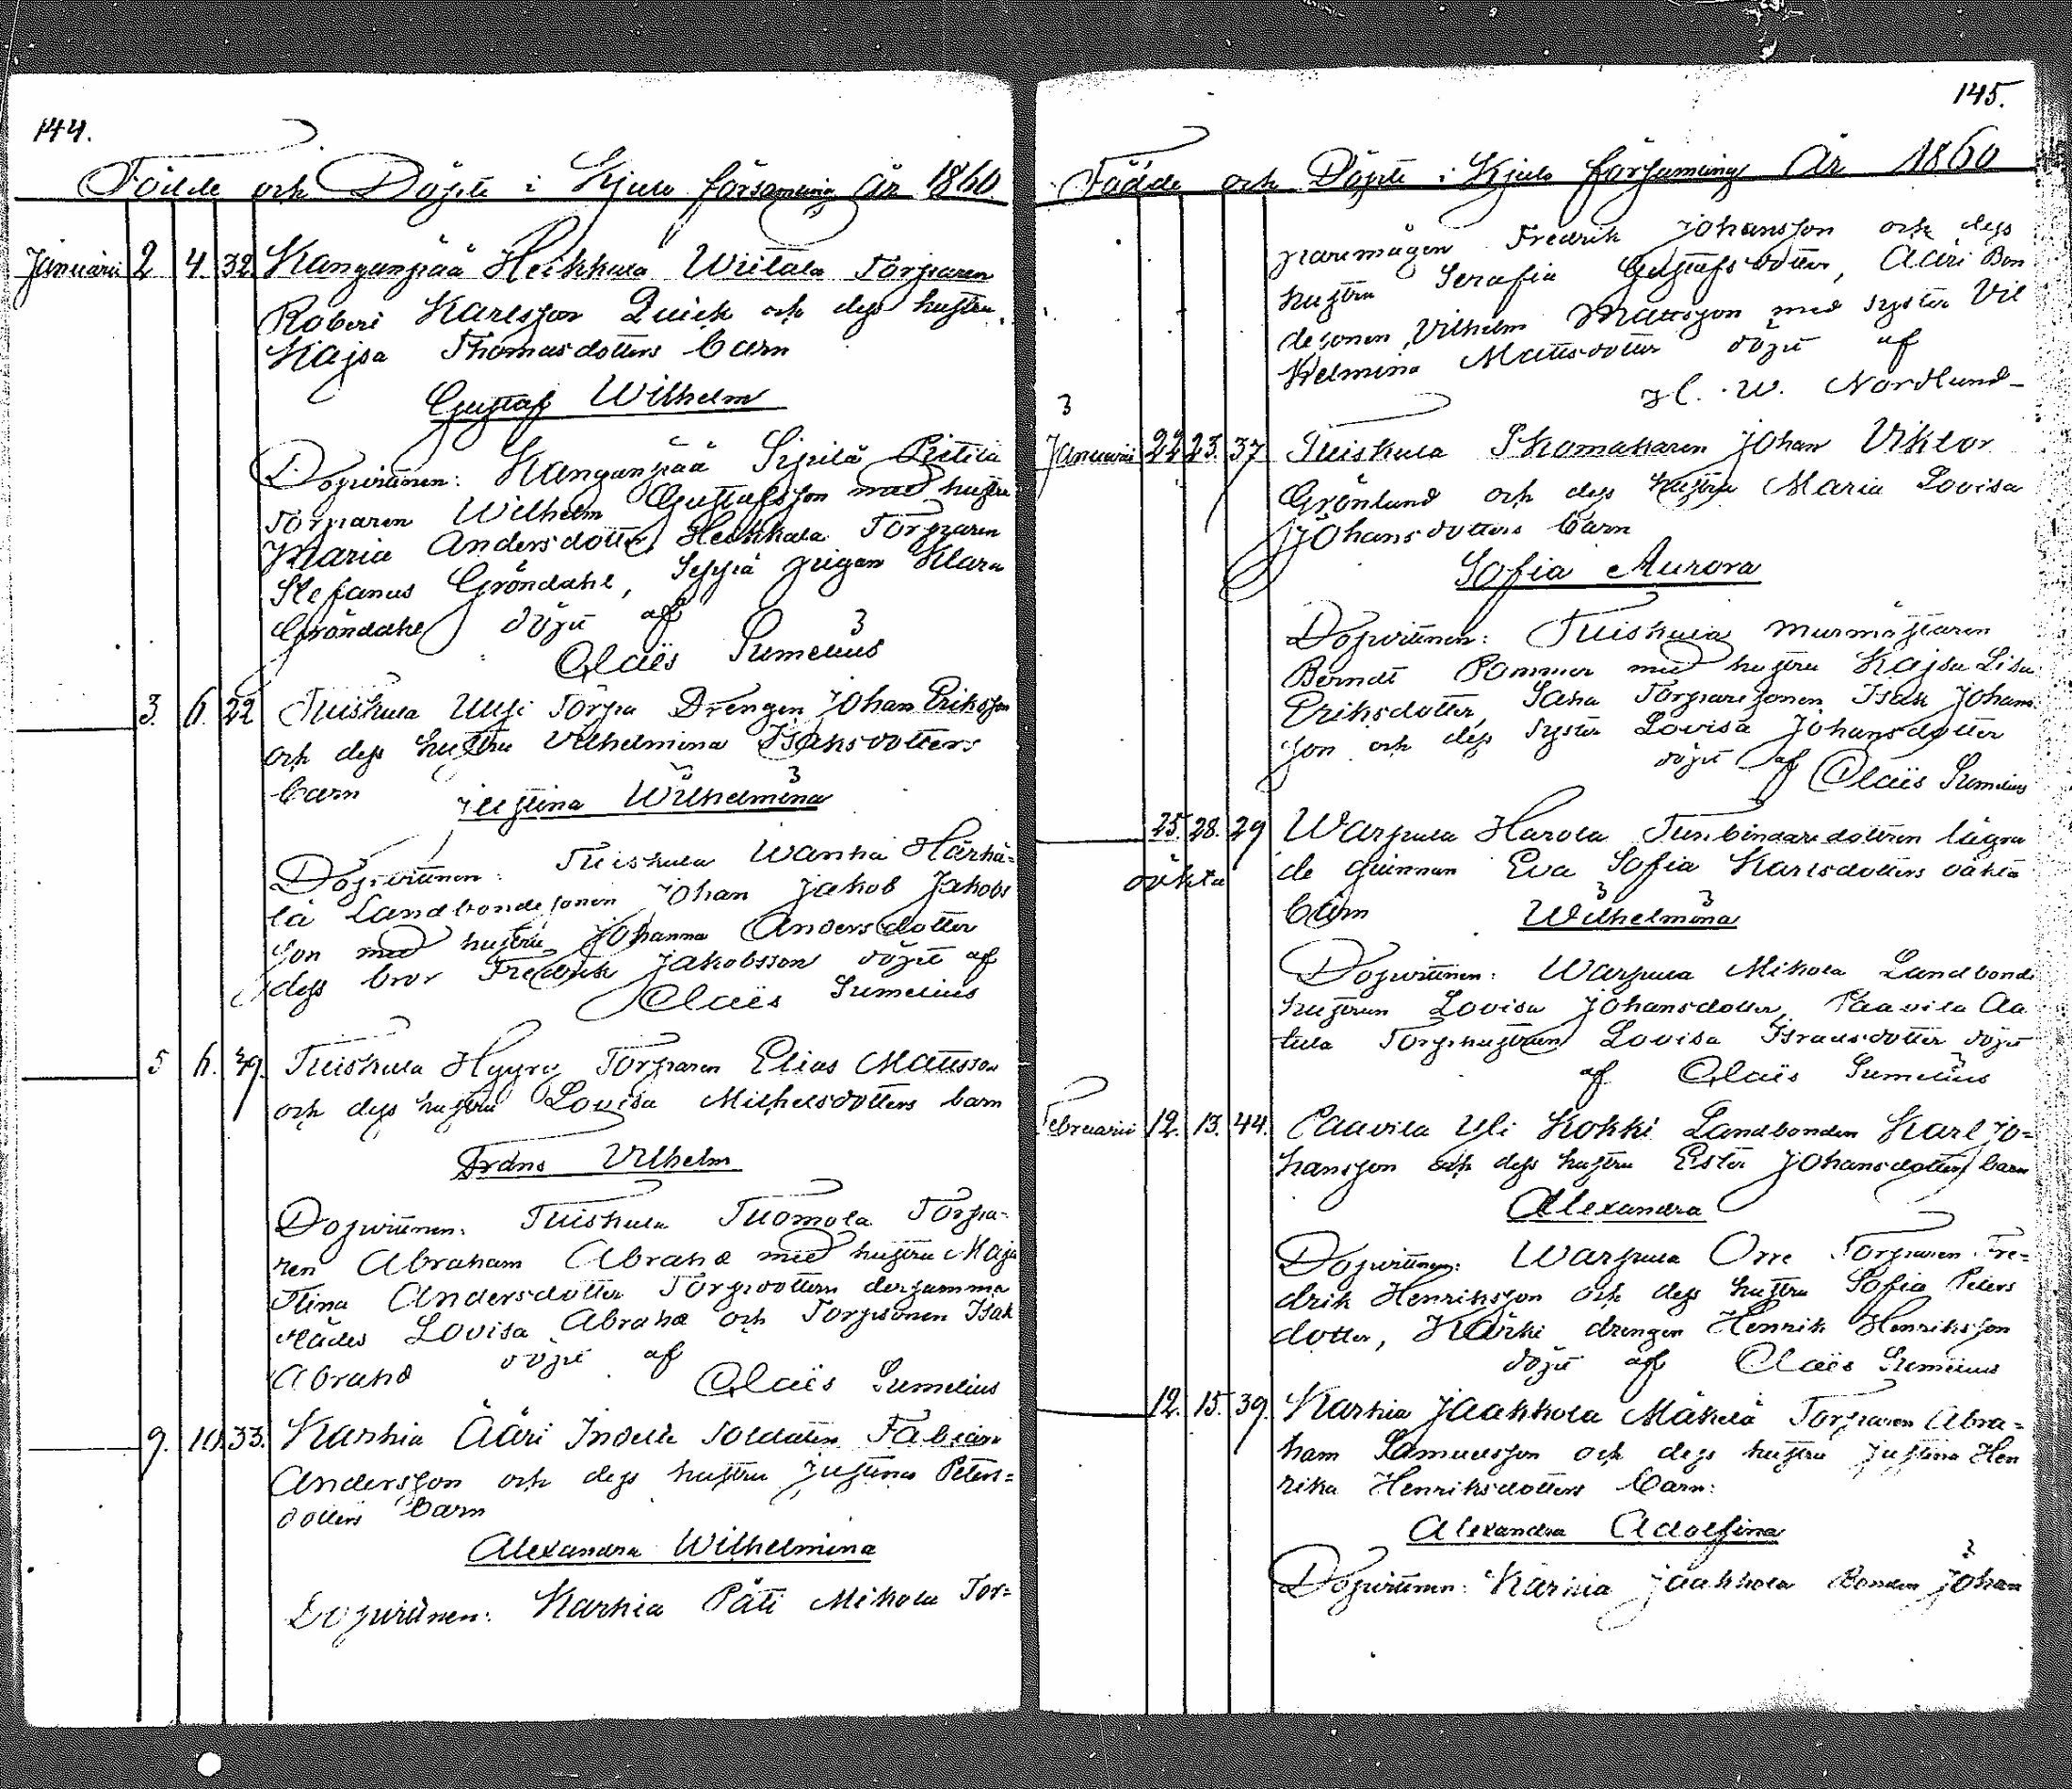 144.
Födde och Döpte i Kjulo församling År 1860.
Januarii 2 4. 32. Kanganpää Heikkala Wiitala Torparen
Robert Karlsson Quick och dess hustru
Kajsa Thomasdotters barn
Gustaf Wilhelm
Dopvittnen: Kanganpää Sipilä Pietilä
Torparen Wilhelm Gustafsson med hustru
Maria Andersdotter, Heikkala Torparen
Stefanus Gröndahl, Seppä pigan Klara
Gröndahl döpt af
Claës Sumelius
3. 6. 22 Tuiskula Uusi Torpa Drengen Johan Eriksson
och dess hustru Vilhelmina Isaksdotters
barn Justina Wilhelmina
Dopvittnen: Tuiskula Wanha Härhä=
lä Landbondesonen Johan Jakob Jakobs
son med hustru Johanna Andersdotter
dess bror Fredrik Jakobsson döpt af
Claës Sumelius
5 6. 39. Tuiskula Hyyry Torparen Elias Mattsson
och dess hustru Lovisa Michelsdotters barn
Frans Vilhelm
Dopvittnen: Tuiskula Tuomola Torpa=
ren Abraham Abrahd med hustru Maja
Stina Andersdotter Torpdottern dersamma
städes Lovisa Abrahd och Torpsonen Isak
Abrahd döpt af
Claës Sumelius
9. 10. 33. Karhia Ääri Indelte Soldaten Fabian
Andersson och dess hustru Justina Peters=
dotters barn
Alexandra Wilhelmina
Dopvittnen: Karhia Päti Mikola Tor=
145.
Födde och Döpte i Kjulo församling År 1860
paremågen Fredrik Johansson och dess
hustru Serafia Gustafsdotter, Ääri Bon
desonen Vilhelm Mattsson med syster Vil
helmina Mattsdotter döpt af
W. Nordlund
3
Januarii 22 23. 37 Tuiskula Skomakaren Johan Viktor
Grönlund och dess hustru Maria Lovisa
Johansdotters barn
Sofia Aurora
Dopvittnen: Tuiskula murmästaren
Berndt Pommer med hustru Kajsa Lisa
Eriksdotter, Saha Torparesonen Isak Johans
son och dess syster Lovisa Johansdotter
döpt af Claës Sumelius
25. 28. 29 Warpula Harola Tunbindaredottren lägra
oäkta de qvinnan Eva Sofia Karlsdotters oäkta
barn Wilhelmina
Dopvittnen: Warpula Mikola Landbonde
hustrun Lovisa Johansdotter, Paavila Aa
tula Torphustrun Lovisa Israelsdotter döpt
af Claës Sumelius
Februarii 12. 13. 44. Paavila Yli Kokki Landbonden Karl Jo=
hansson och dess hustru Ester Johansdotters barn
Alexandra
Dopvittnen: Warpula Orre Torparen Fre=
drik Henriksson och dess hustru Sofia Peters
dotter, Kärki drengen Henrik Henriksson
döpt af Claës Sumelius
12. 15. 39. Karhia Jaakkola Mäkelä Torparen Abra=
ham Samuelsson och dess hustru Justina Hen
rika Henriksdotters barn:
Alexandra Adolfina
Dopvittnen: Karhia Jaakkola Bonden Johan